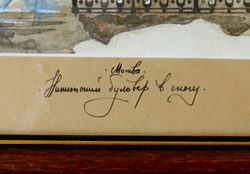 . Москва.
. Никитский бульвар в снегу.